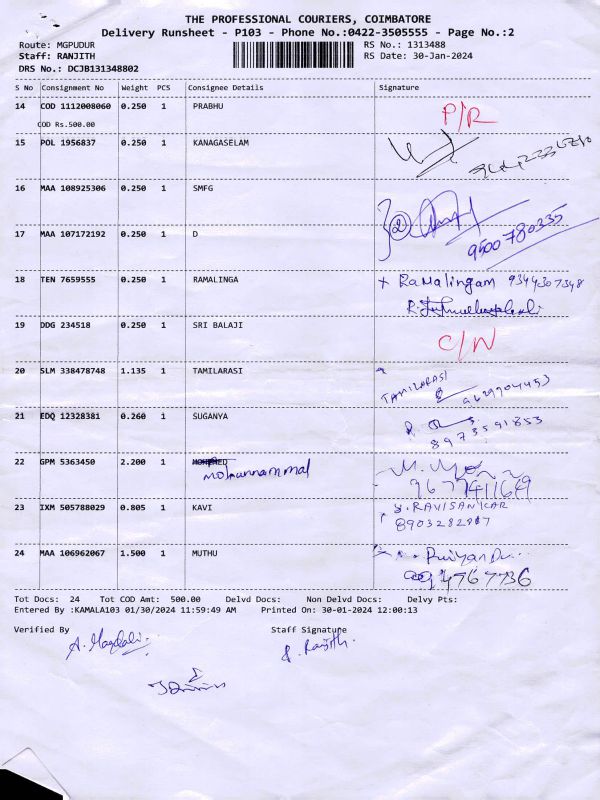 THE PROFESSIONAL COURIERS, COIMBATORE
Delivery Runsheet - P103 - Phone No.:0422-3505555 - Page No.:2
Route: MGPUDUR RS No.: 1313488
Staff: RANJITH RS Date: 30-Jan-2024
DRS No.: DCJB131348802
S No Consignment No Weight PCS Consignee Details Signature
14 COD 1112008060 0.250 1 PRABHU P/R
COD Rs.500.00
15 POL 1956837 0.250 1 KANAGASELAM
16 MAA 108925306 0.250 1 SMFG
17 MAA 107172192 0.250 1 D 9500780335
18 TEN 7659555 0.250 1 RAMALINGA Ramalingam 9344307348
19 DDG 234518 0.250 1 SRI BALAJI C/N
20 SLM 338478748 1.135 1 TAMILARASI TAMILARASI
9629704453
21 EDQ 12328381 0.260 1 SUGANYA
8973591853
22 GPM 5363450 2.200 1
23 IXM 505788029 0.805 1 KAVI RAVISANKAR
24 MAA 106962067 1.500 1 MUTHU
Tot Docs: 24 Tot COD Amt: 500.00 Delvd Docs: Non Delvd Docs: Delvy Pts:
Entered By :KAMALA103 01/30/2024 11:59:49 AM Printed On: 30-01-2024 12:00:13
Verified By Staff Signature